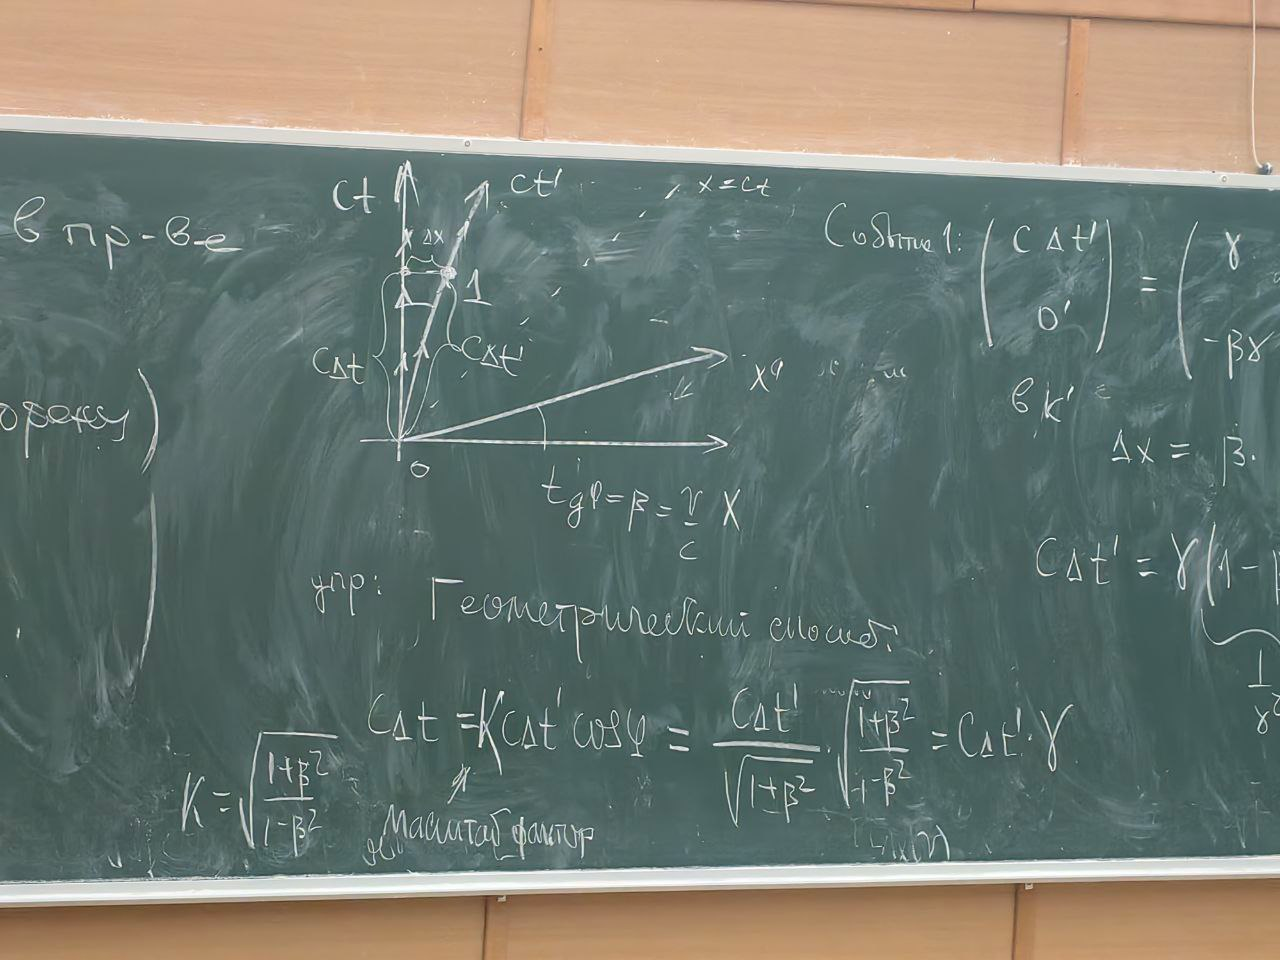 в пр-ве
ct
ct'
x = ct
Δx
1
cΔt
cΔt'
x'
0
tgφ = β = v/c
X
Событие 1: (cΔt' 0') = (γ -βγ
в K'
Δx = β·
cΔt' = γ(1-β
1/γ²
упр: Геометрический способ:
cΔt = KcΔt' cosφ = cΔt'/√(1+β²) · √((1+β²)/(1-β²)) = cΔt'·γ
K = √((1+β²)/(1-β²))
Масштаб фактор